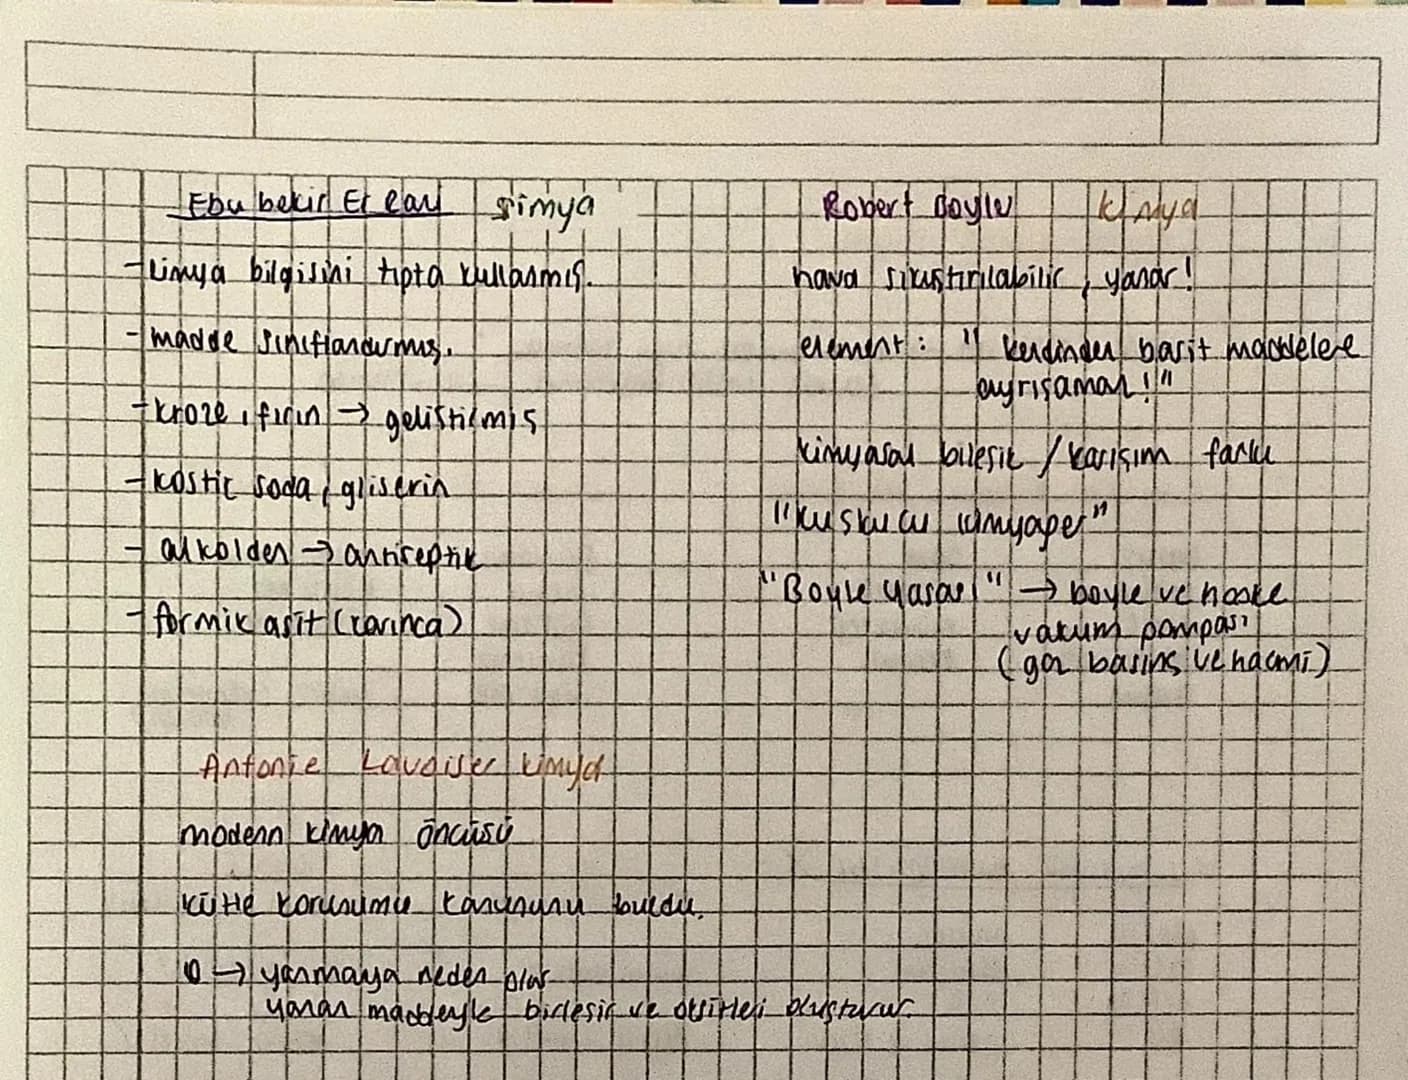 Ebu bekir Er Razi simya
-kimya bilgisini tıpta kullanmış.
-madde sınıflandırmış.
-kroze, fırın → geliştirmiş
-kostic soda, gliserin
- alkolden → antiseptik
- formik asit (karınca)
Robert Boyle kimya
hava sıkıştırılabilir, yanar!
element: " kendinden basit maddelere
ayrışamaz!"
kimyasal bileşik / karışım farkı
"kuşkucu kimyager"
"Boyle Yasası" → boyle ve hooke
vakum pompası
(gaz basınç ve hacmi)
Antonie Lavoiser kimya
modern kimya öncüsü
kütle korunumu kanununu buldu.
O → yanmaya neden olur
yanan maddeyle birleşir ve oksitleri oluşturur.